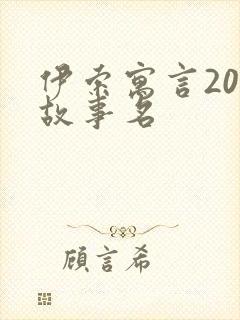 伊索寓言20
故事名
顧言希